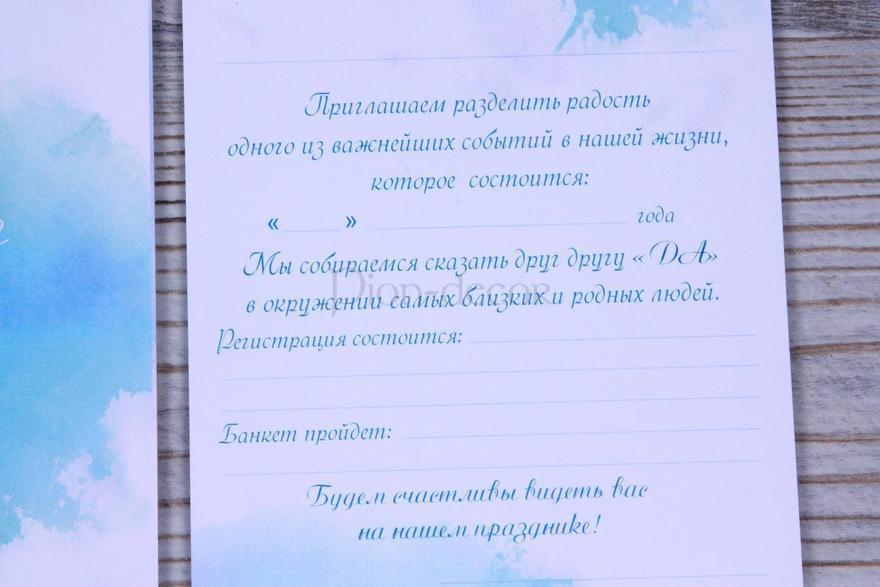 Приглашаем разделить радость
одного из важнейших событий в нашей жизни,
которое состоится:
«_____» _______________ года
Мы собираемся сказать друг другу «ДА»
в окружении самых близких и родных людей.
Pion-decor
Регистрация состоится:
Банкет пройдет:
Будем счастливы видеть вас
на нашем празднике!